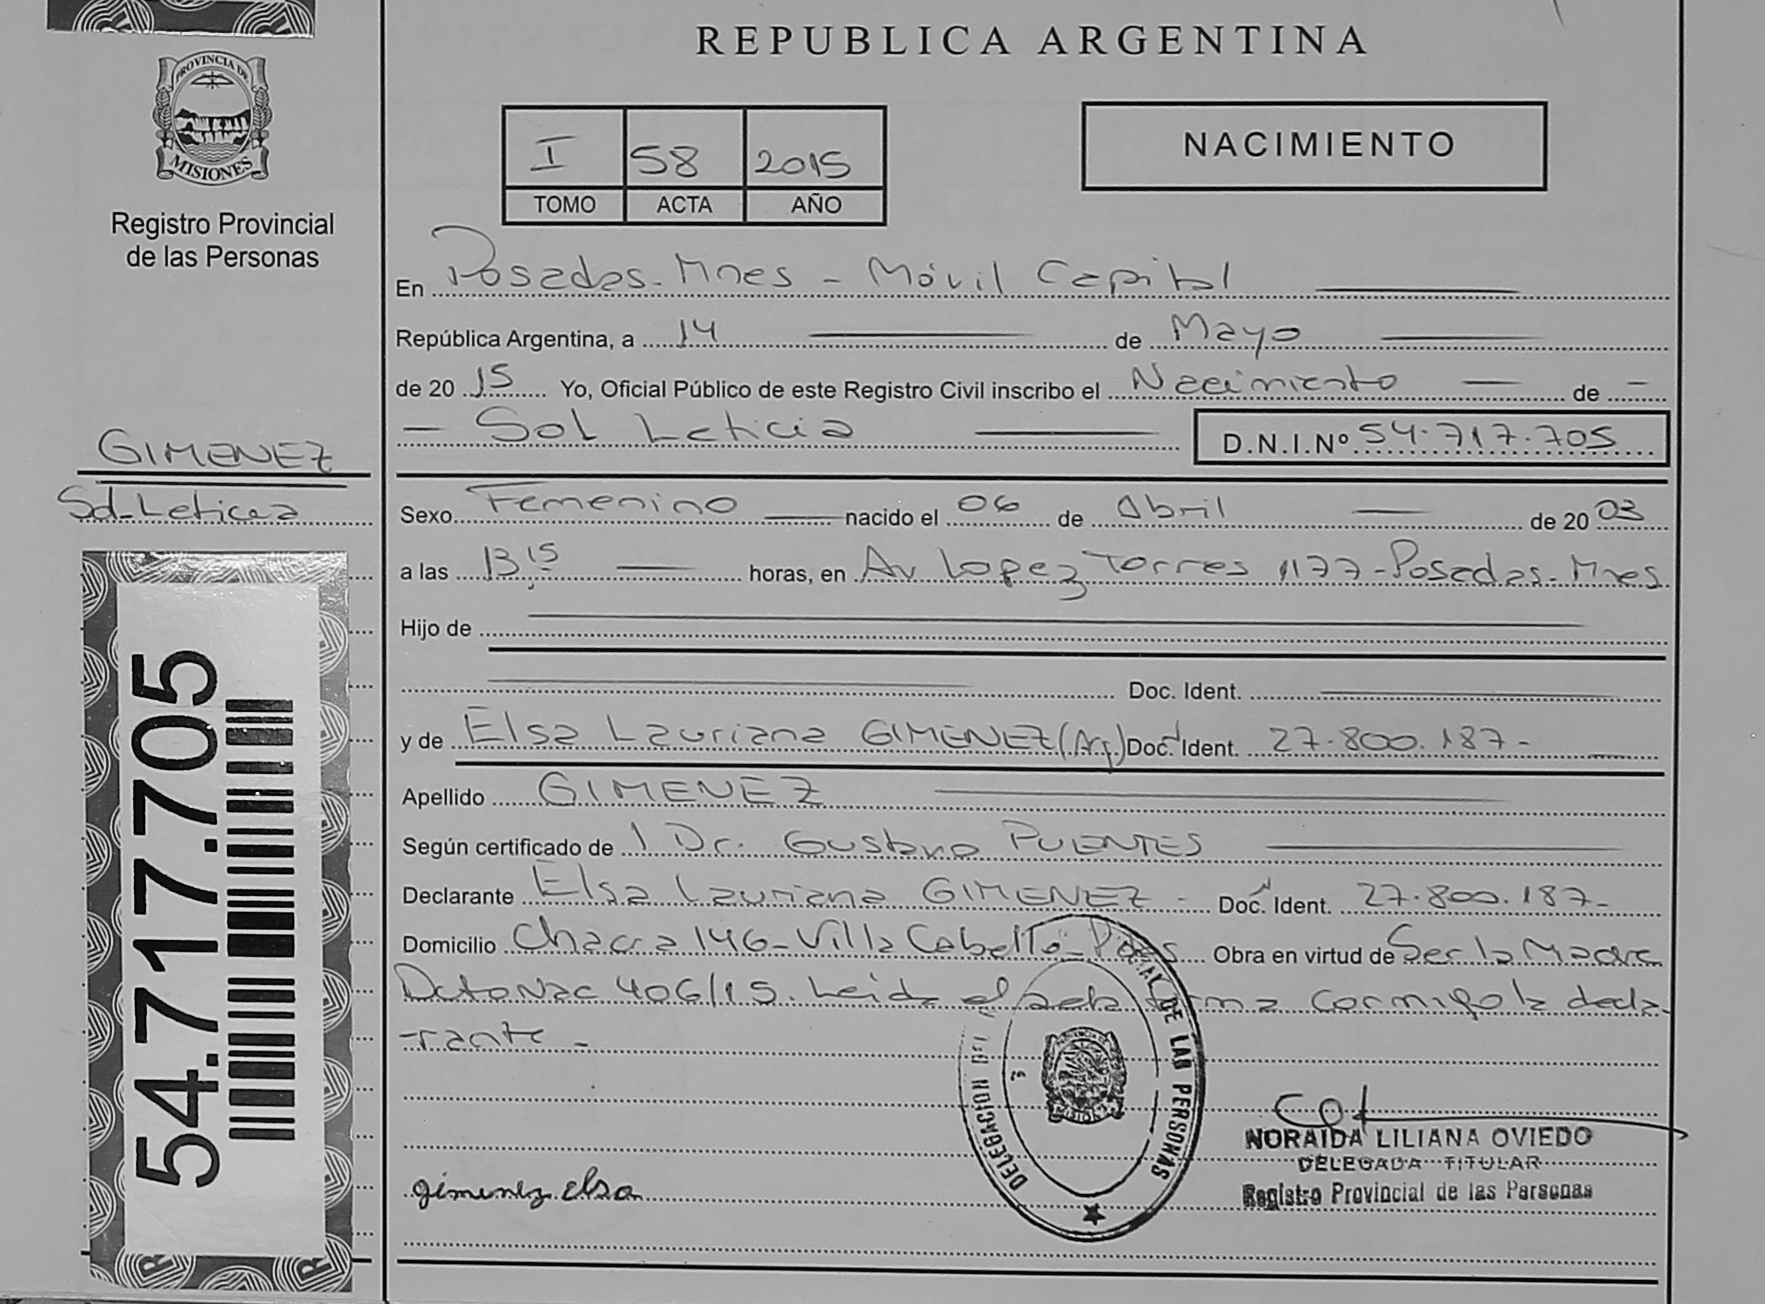 REPUBLICA ARGENTINA
PROVINCIA DE
MISIONES
Registro Provincial
de las Personas
I 58 2015
TOMO ACTA AÑO
NACIMIENTO
En Posadas - Mnes - Móvil Capital
República Argentina, a 14 de Mayo
de 20 15 Yo, Oficial Público de este Registro Civil inscribo el Nacimiento de -
- Sol Leticia
D.N.I.Nº 54.717.705
GIMENEZ
Sol Leticia
Sexo Femenino nacido el 06 de Abril de 20 03
a las 13,15 horas, en Av Lopez Torres 1177 - Posadas - Mnes
Hijo de
Doc. Ident.
y de Elsa Lauriana GIMENEZ (Arg.) Doc. Ident. 27.800.187-
Apellido GIMENEZ
Según certificado de 1 Dr. Gustavo PUENTES
Declarante Elsa Lauriana GIMENEZ - Doc. Ident. 27.800.187-
Domicilio Chacra 146 - Villa Cabello - Pdas Obra en virtud de Ser la Madre
Dcto Nac 406/15. Leida el acta firma conmigo la decla
rante -
54.717.705
DELEGACION
DE LAS PERSONAS
MISIONES
NORAIDA LILIANA OVIEDO
DELEGADA TITULAR
Registro Provincial de las Personas
gimenez elsa